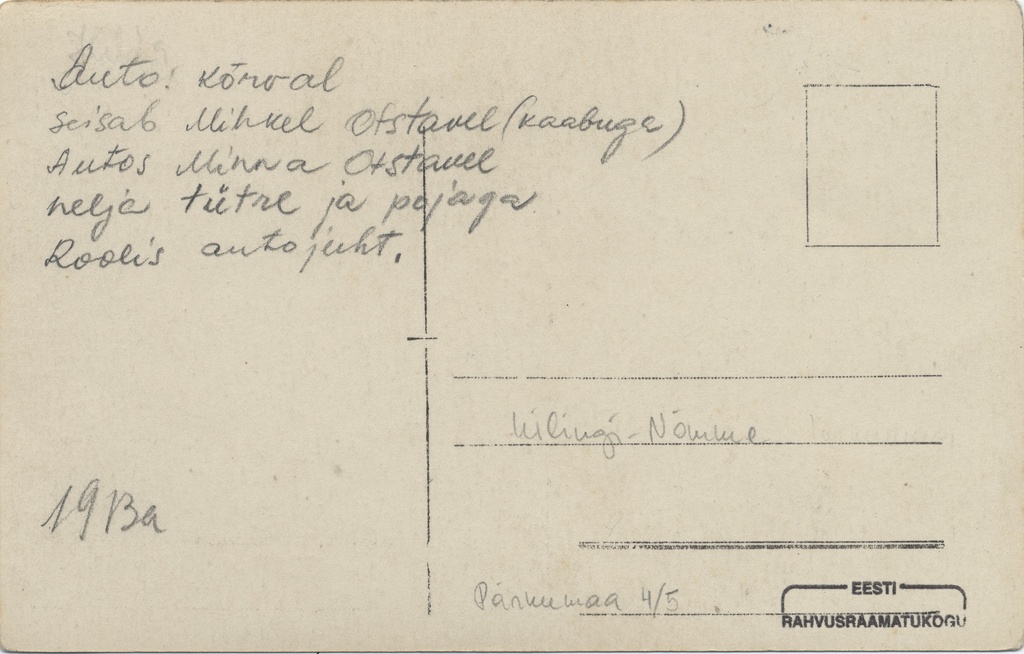 Auto: kõrval
seisab Mihkel Otstavel (kaabuga)
Autos Minna Otstavel
nelja tütre ja pojaga
Roolis autojuht.
Kilingi-Nõmme
1913a
Pärnumaa 4/5
EESTI
RAHVUSRAAMATUKOGU